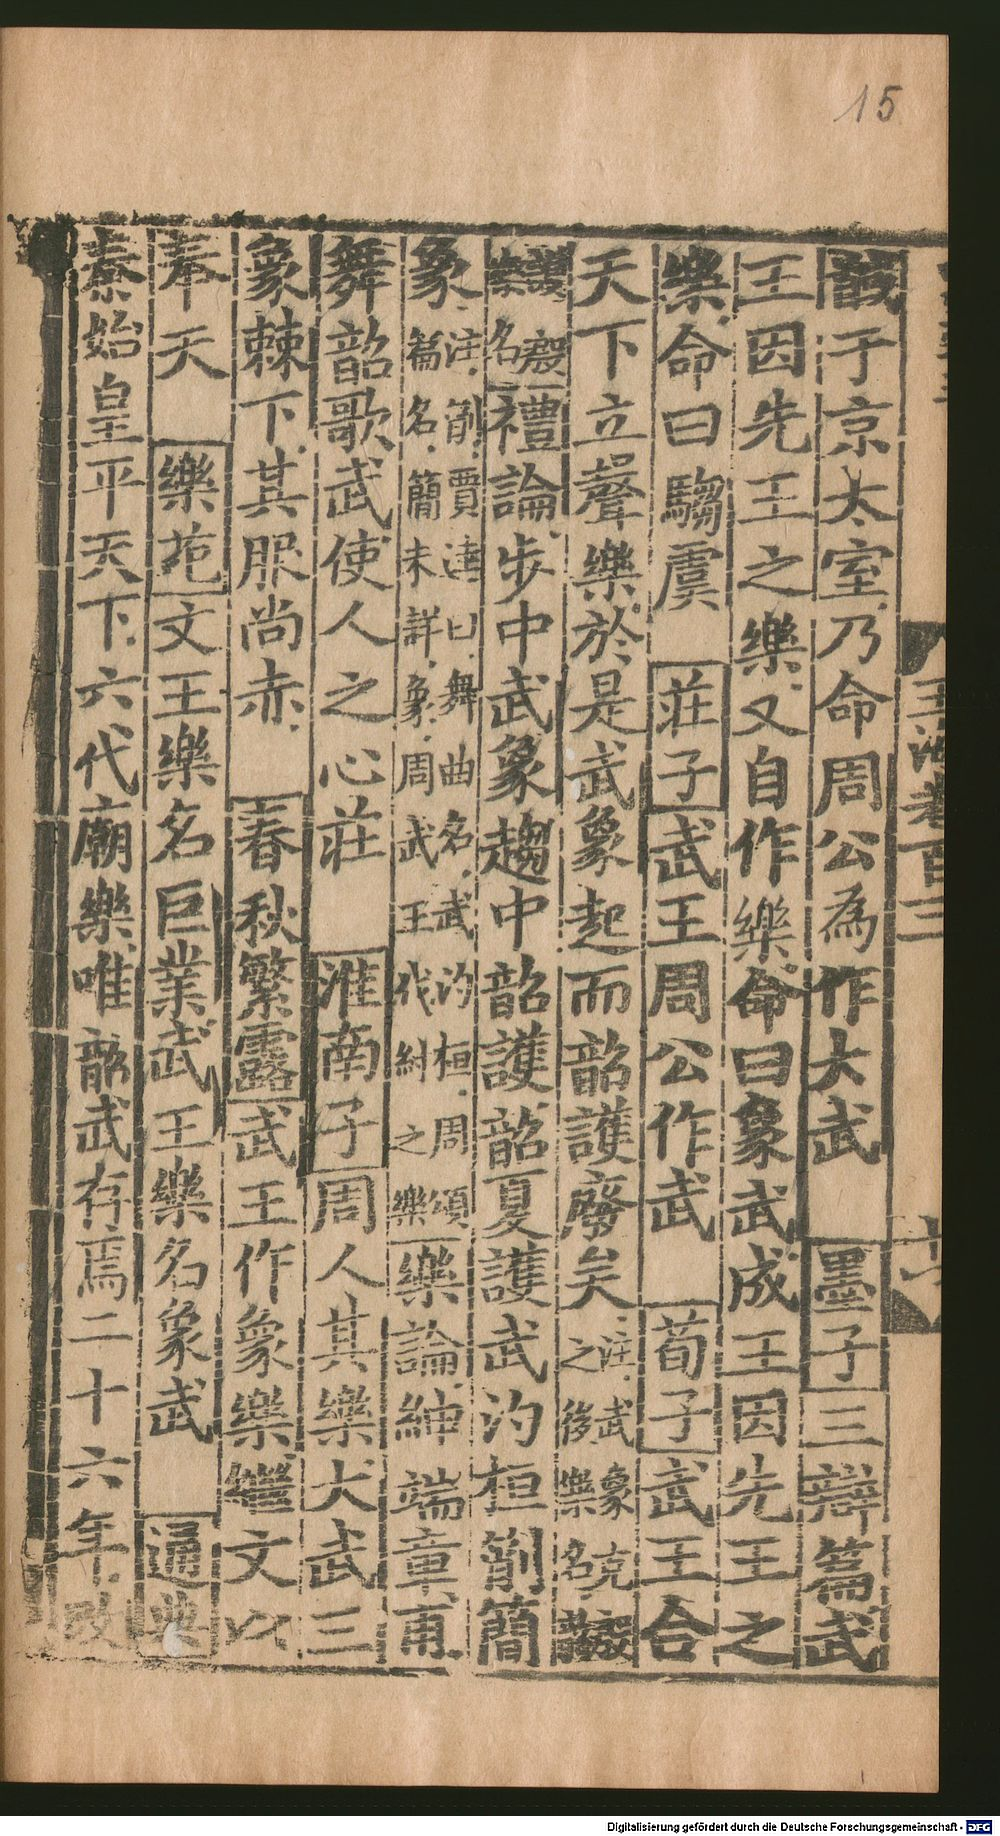 15
馘于京太室乃命周公為作大武 墨子三辯篇武
王因先王之樂又自作樂命曰象武成王因先王之
樂命曰騶虞 莊子武王周公作武 荀子武王合
天下立聲樂於是武象起而韶護廢矣注武象克殷之後樂名護
殷樂名禮論步中武象趨中韶護韶夏護武汋桓箾簡
象注箾賈逵曰舞曲名武汋桓周頌篇名簡未詳象周武王伐紂之樂樂論紳端章甫
舞韶歌武使人之心莊 淮南子周人其樂大武三
象棘下其服尚赤 春秋繁露武王作象樂繼文以
奉天 樂苑文王樂名巨業武王樂名象武 通典
秦始皇平天下六代廟樂唯韶武存焉二十六年改
玉海卷百三
Digitalisierung gefördert durch die Deutsche Forschungsgemeinschaft - DFG